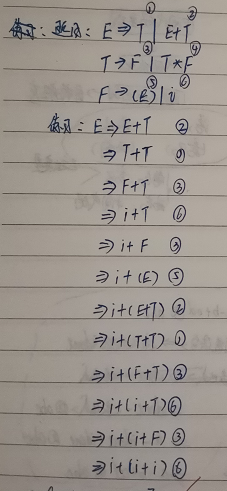 练习：题目：E⇒T① | E+T②
T⇒F③ | T*F④
F⇒(E)⑤ | i⑥
练习：E⇒E+T ②
⇒T+T ①
⇒F+T ③
⇒i+T ⑥
⇒i+F ③
⇒i+(E) ⑤
⇒i+(E+T) ②
⇒i+(T+T) ①
⇒i+(F+T) ③
⇒i+(i+T) ⑥
⇒i+(i+F) ③
⇒i+(i+i) ⑥